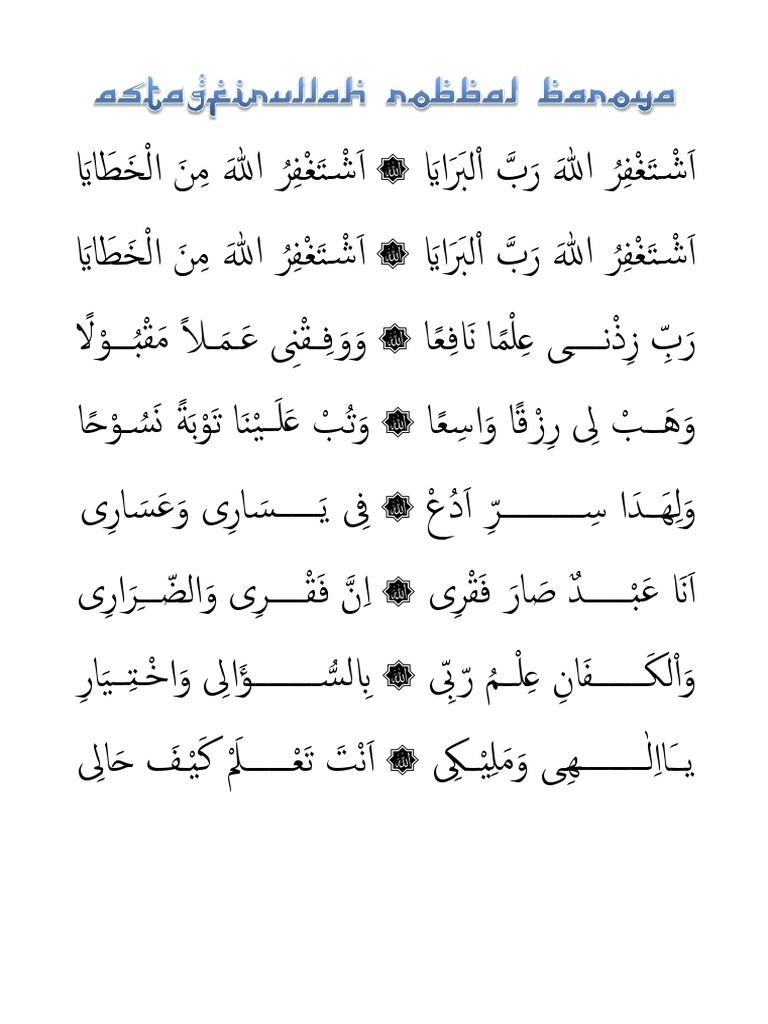 astagfirullah robbal baroya
اَشْتَغْفِرُ اللهَ رَبَّ اْلبَرَايَا ۞ اَشْتَغْفِرُ اللهَ مِنَ الْخَطَايَا
اَشْتَغْفِرُ اللهَ رَبَّ اْلبَرَايَا ۞ اَشْتَغْفِرُ اللهَ مِنَ الْخَطَايَا
رَبِّ زِذْنـــى عِلْمًا نَافِعًا ۞ وَوَفِـقْنِى عَـمَـلاً مَقْبُــوْلًا
وَهَــبْ لِى رِزْقًا وَاسِعًا ۞ وَتُبْ عَلَــيْنَا تَوْبَةً نَسُـوْحًا
وَلِهَــدَا سِــــــــرِّ اَدُعْ ۞ فِى يَـــــسَارِى وَعَسَارِى
اَنَا عَبْـــــدٌ صَارَ فَقْرِى ۞ اِنَّ فَقْــــرِى وَالضّــرَارِى
وَاْلكَـــــفَانِ عِلْــمُ رّبِّى ۞ بِالسُّـــــــؤَالِى وَاخْـتِـيَارِ
يــَااِلٰـــــــهِى وَمَلِيْـكِى ۞ اَنْتَ تَعْــــلَمْ كَيْـفَ حَالِى